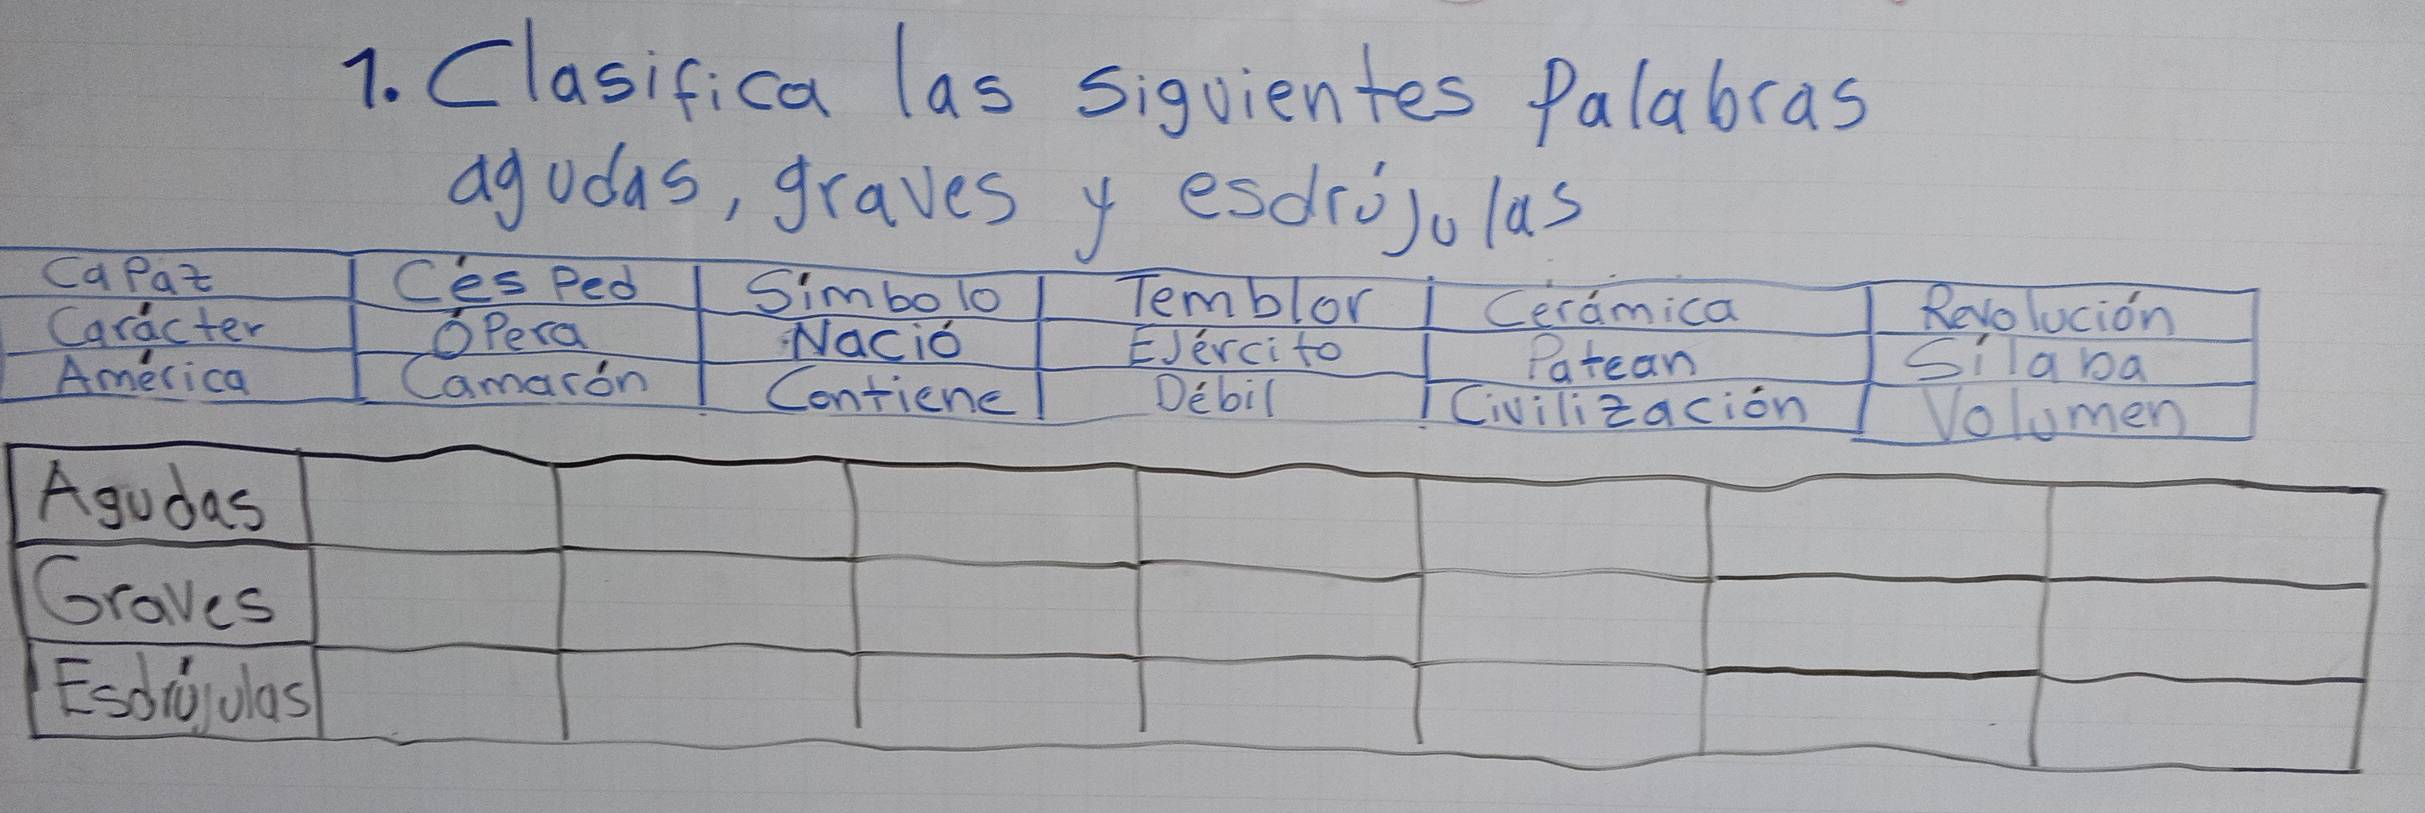 1. Clasifica las siguientes Palabras
agudas, graves y esdrújulas
Capaz Césped Símbolo Temblor Cerámica Revolución
Carácter Ópera Nació Ejército Patean Sílaba
América Camarón Contiene Débil Civilización Volumen
Agudas
Graves
Esdrújulas